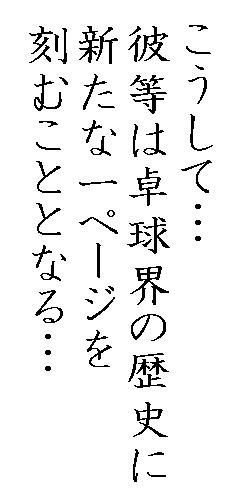 こうして…
彼等は卓球界の歴史に
新たな一ページを
刻むこととなる…